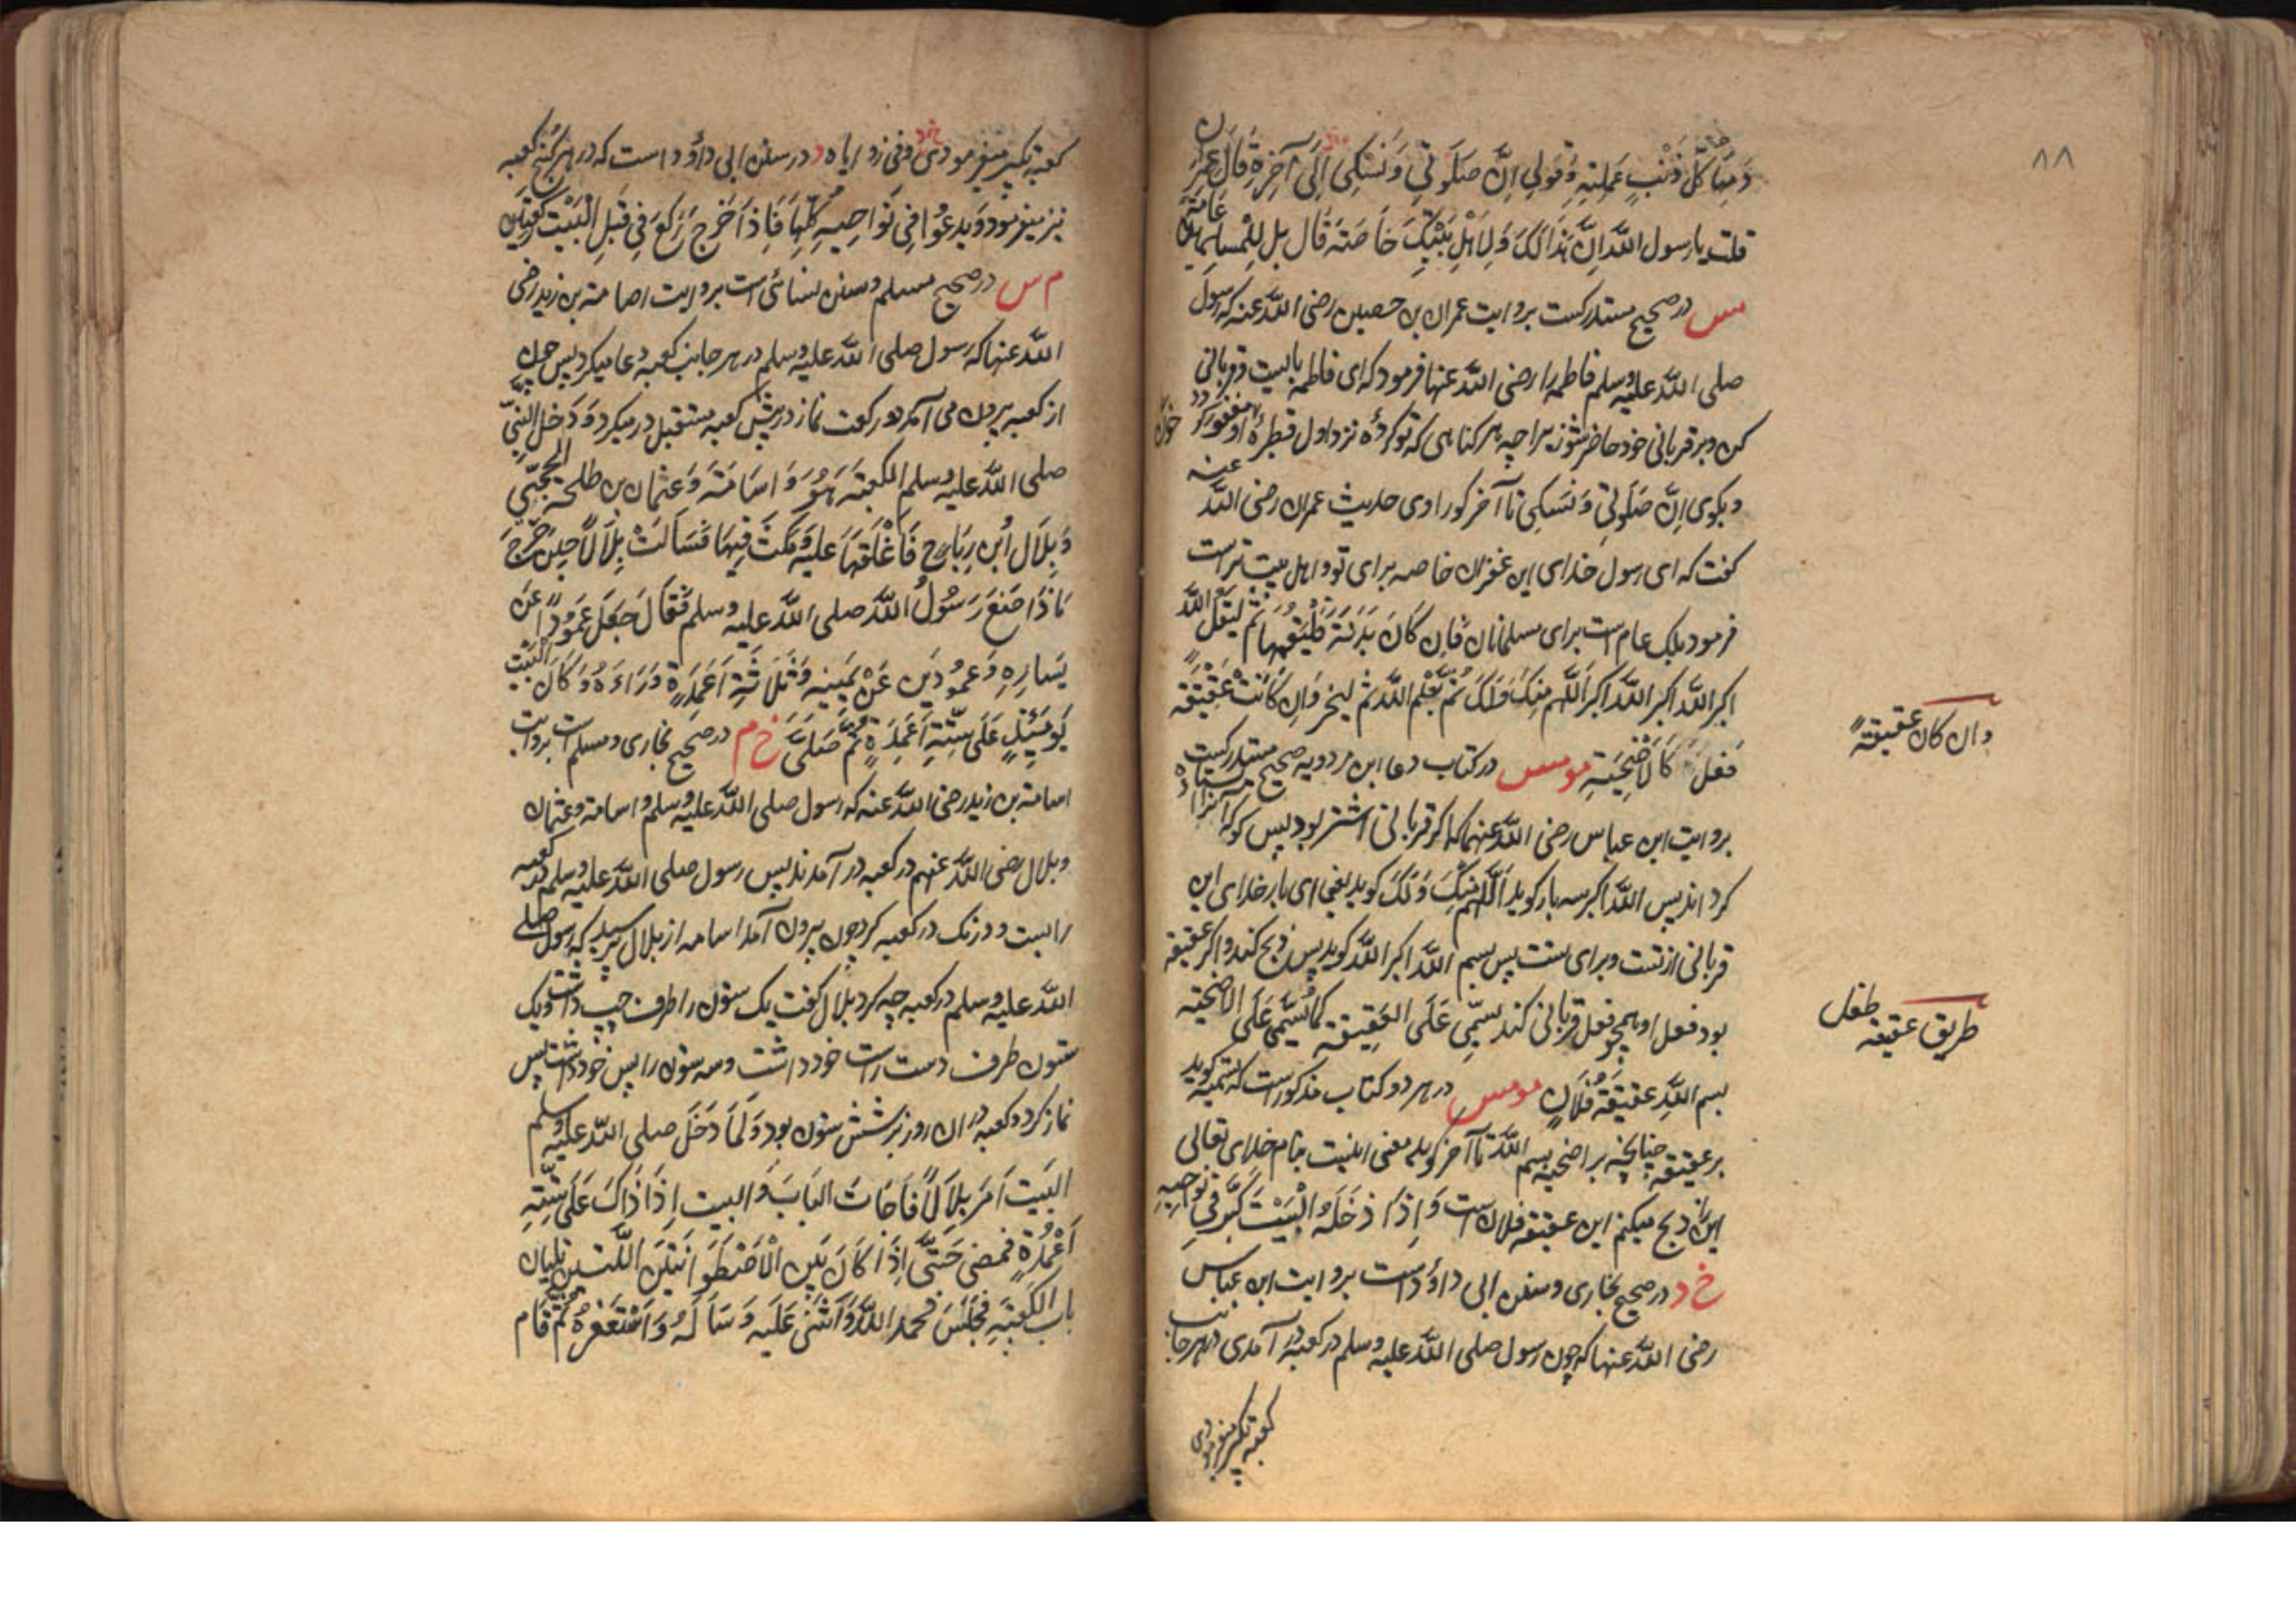 ۸۸
دمها كل ذنب عملتيه وقولي ان صلوتي ونسكي الى آخره قال عمران
قلت يا رسول الله ان هذا لك ولاهل بيتك خاصته قال بل للمسلمين عامة
س در صحیح مستدرکست بروایت عمران بن حصین رضی الله عنه که رسول
صلی الله علیه وسلم فاطمه را رضی الله عنها فرمود که ای فاطمه بالیست وقربانی
کن وبر قربانی خود حاضر شو زیرا چه هر کناهی که تو کرده نزد اول قطره خون او مغفور کردد
وبکوی ان صلوتی ونسکی تا آخر کو راوی حدیث عمران رضی الله عنه
کفت که ای رسول خدای این غفران خاصه برای تو واهل بیت تراست
فرمود بلک عام است برای مسلمانان فان كان بدنة فليقمها ثم ليقل الله
اکبر الله اکبر الله اکبر اللهم منك ولك ثم بسم الله ثم لینحر وان كانت عقيقة
فعل كالاضحية مو مس در کتاب دعا ابن مردویه صحیح مستدرکست
بروایت ابن عباس رضی الله عنهما که اکر قربانی اشتر بود پس کو که آنرا استاده
کرد اند پس الله اکبر سه بار کوید اللهم منك ولك کوید یعنی ای بار خدای این
قربانی از تست وبرای تست پس بسم الله اکبر الله کوید پس ذبح کند واکر عقیقه
بود فعل او همچو فعل قربانی کند يسمى على العقيقة كما يسمى على الاضحية
بسم الله عقيقة فلان مو مس در هر دو کتاب مذکور است که تسمیه کوید
بر عقیقه چنانچه بر اضحیه بسم الله تا آخر کوید معنی اینست بنام خدای تعالی
این را ذبح میکنم این عقیقه فلان است واذا دخل البيت كبر في نواحيه
خ د در صحیح بخاری وسنن ابی داؤد است بروایت ابن عباس
رضی الله عنهما که چون رسول صلی الله علیه وسلم در کعبه در آمدی در هر جانب
کعبه تکبیر میفرمودی
وان كان عقيقة
طریق عقیقه طفل
کعبه تکبیر میفرمودی وفی زوایاه د در سنن ابی داؤد است که در هر کنج کعبه
نیز میفرمود ويدعوا في نواحيه كلها فاذا خرج ركع في قبل البيت ركعتين
م س در صحیح مسلم وسنن نسائی است بروایت اصامة بن زید رضی
الله عنها که رسول صلی الله علیه وسلم در هر جانب کعبه دعا میکرد پس چون
از کعبه بیرون می آمد دو رکعت نماز در پیش کعبه مستقبل در میکرد ودخل النبي
صلى الله عليه وسلم الكعبة هو واسامة وعثمان بن طلحة الحجبي
وبلال ابن رباح فاغلقها عليه ومكث فيها فسالت بلالا حين خرج
ماذا صنع رسول الله صلى الله عليه وسلم فقال جعل عمودا عن
يساره وعمودين عن يمينه وثلاثة اعمدة وراءه وكان البيت
يومئذ على ستة اعمدة ثم صلى خ م در صحیح بخاری ومسلم است بروایت
اسامة بن زید رضی الله عنه که رسول صلی الله علیه وسلم واسامة وعثمان
وبلال رضی الله عنهم در کعبه در آمدند پس رسول صلی الله علیه وسلم در کعبه
را بست ودرنک در کعبه کرد چون بیرون آمد اسامه از بلال پرسید که رسول صلی
الله علیه وسلم در کعبه چه کرد بلال کفت یک ستون را طرف چپ داشت ویک
ستون طرف دست راست خود داشت وسه ستون را پس خود داشت پس
نماز کرد وکعبه در ان روز بر شش ستون بود ولما دخل صلى الله عليه وسلم
البيت امر بلالا فاجاف الباب والبيت اذ ذاك على ستة
اعمدة فمضى حتى اذا كان بين الاسطوانتين اللتين تليان
باب الكعبة فجلس فحمد الله واثنى عليه وساله واستغفره ثم قام